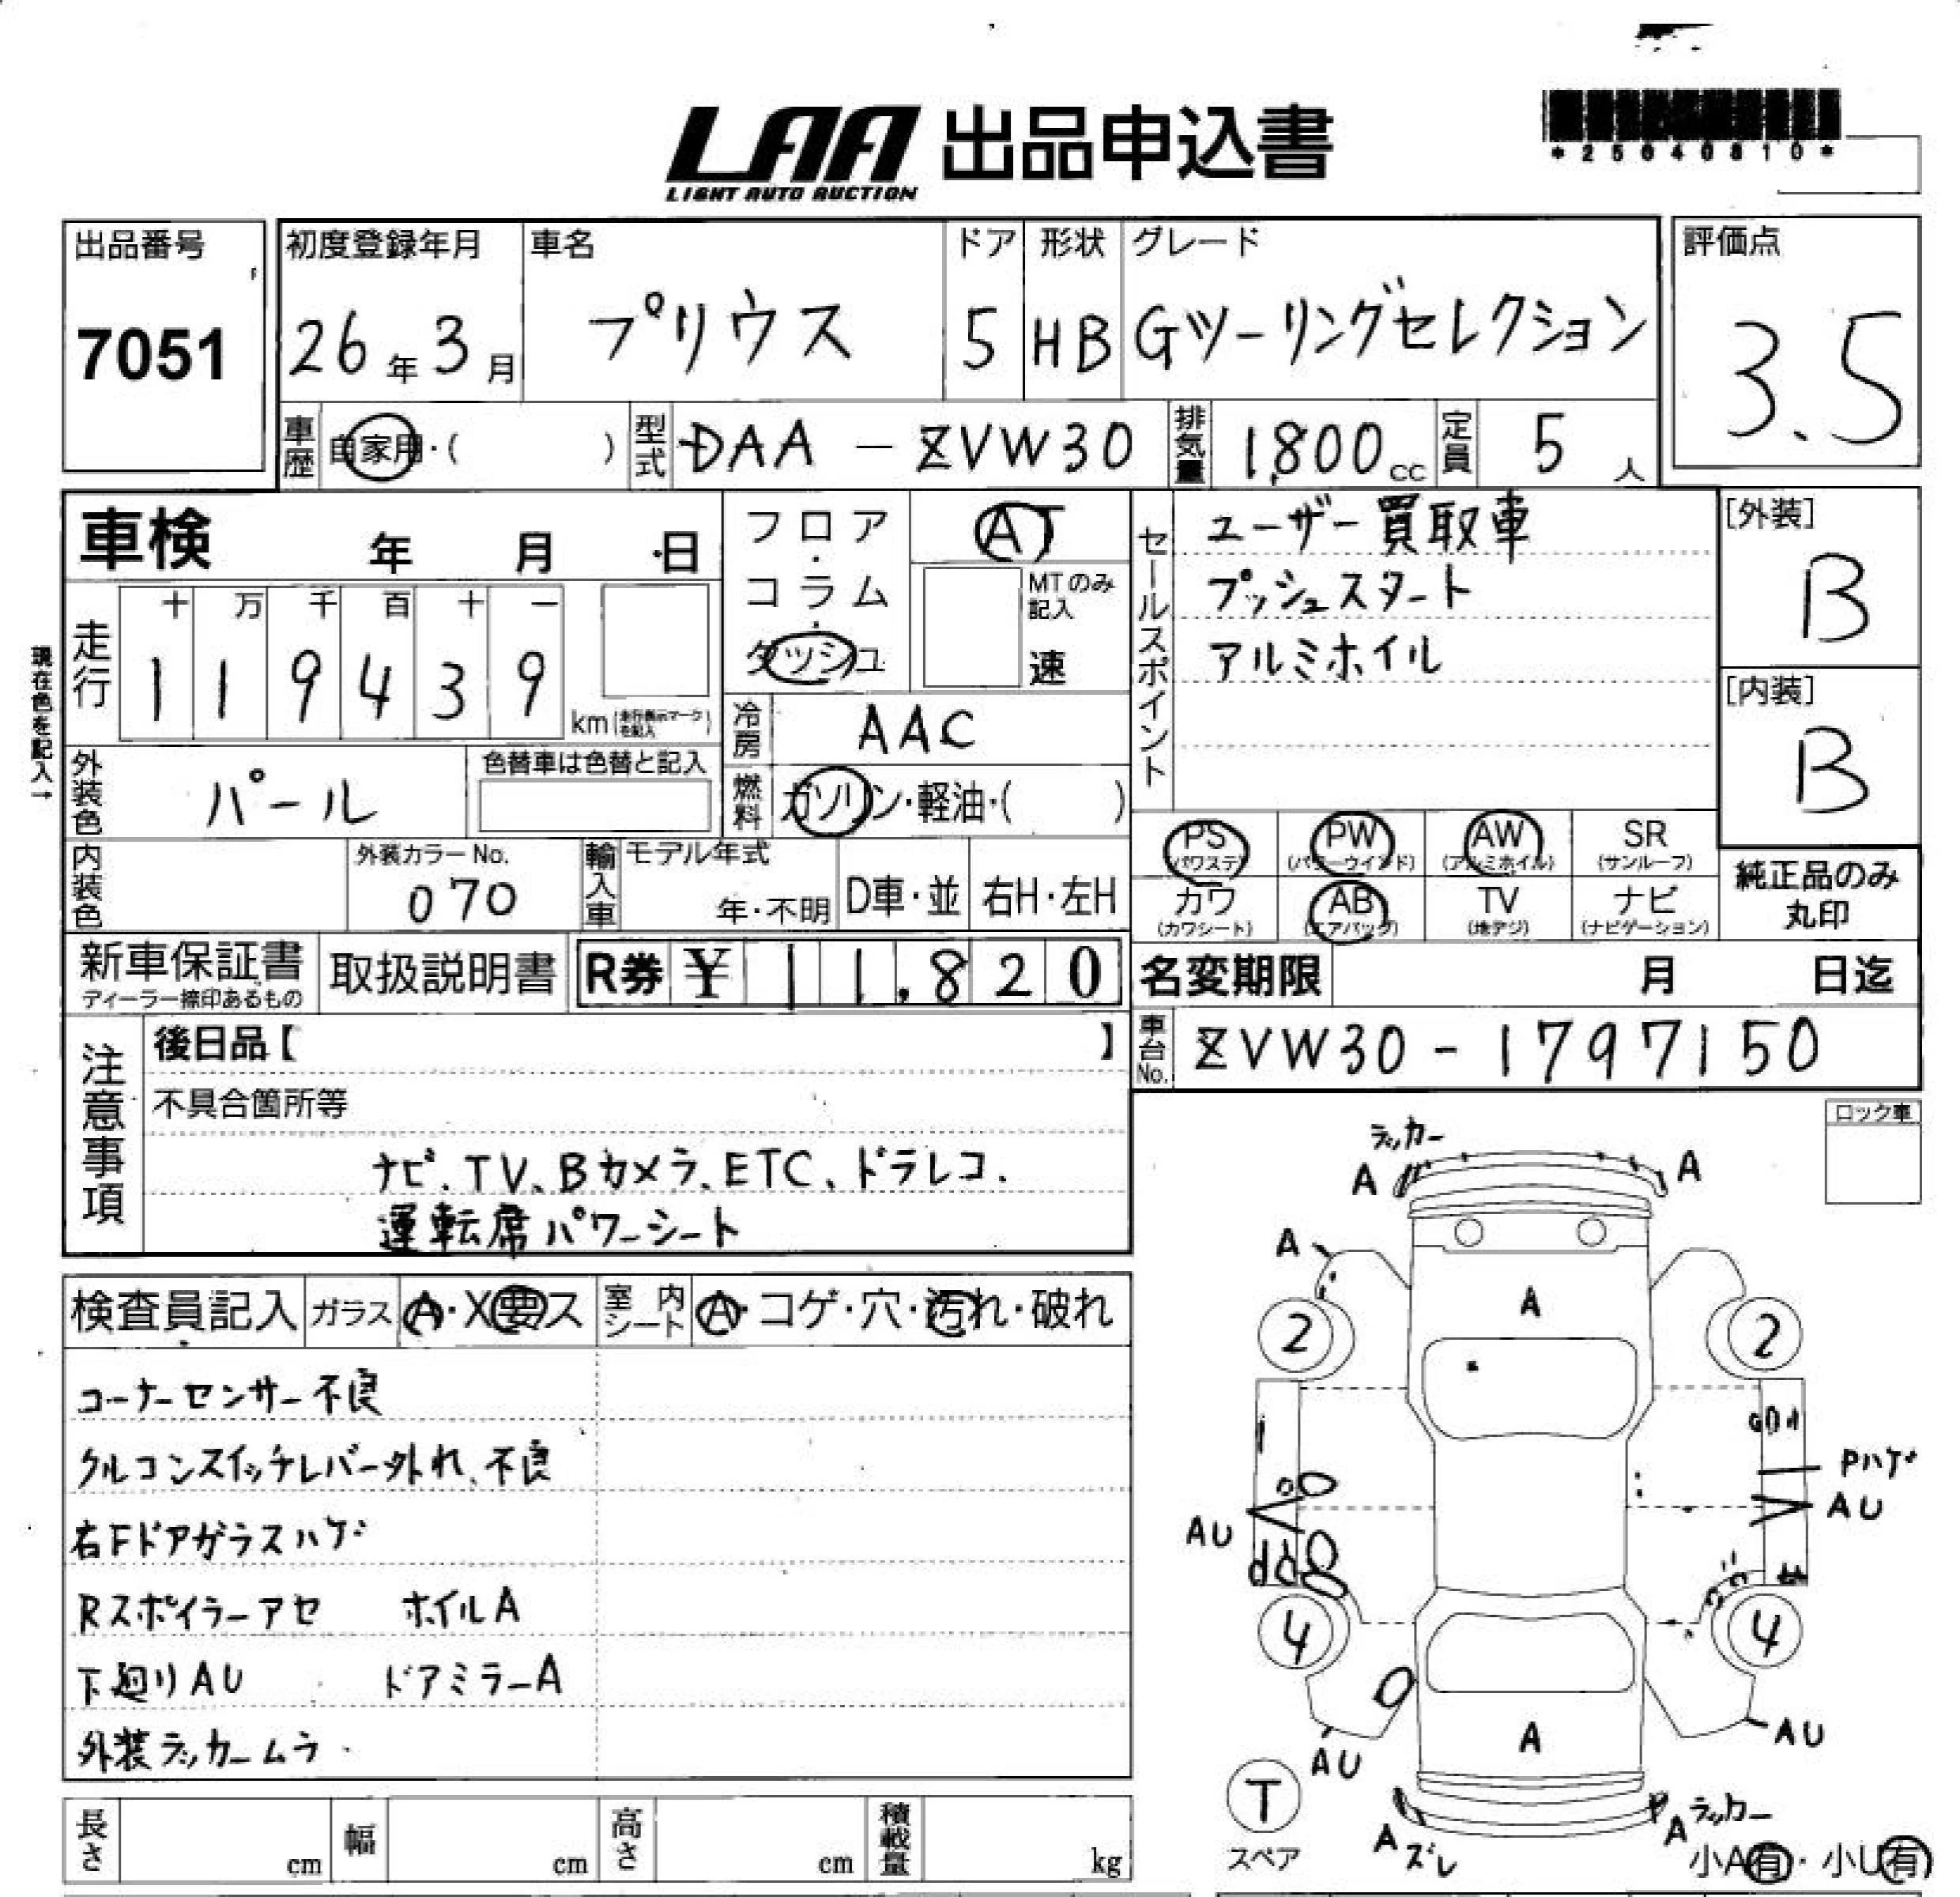 LAA 出品申込書
LIGHT AUTO AUCTION
*25040810*
出品番号
7051
初度登録年月
26年3月
車名
プリウス
ドア
5
形状
HB
グレード
Gツーリングセレクション
評価点
3.5
車歴
自家用・( )
型式
DAA-ZVW30
排気量
1,800cc
定員
5人
車検 年 月 日
フロア・コラム・ダッシュ
AT
MTのみ記入
速
セールスポイント
ユーザー買取車
プッシュスタート
アルミホイル
[外装]
B
[内装]
B
現在色を記入→
走行
十 万 千 百 十 一
1 1 9 4 3 9
km(走行表示マークを記入)
冷房
AAC
外装色
パール
色替車は色替と記入
燃料
ガソリン・軽油・( )
PS
(パワステ)
PW
(パワーウインド)
AW
(アルミホイル)
SR
(サンルーフ)
カワ
(カワシート)
AB
(エアバッグ)
TV
(地デジ)
ナビ
(ナビゲーション)
純正品のみ
丸印
内装色
外装カラーNo.
070
輸入車
モデル年式
年・不明
D車・並
右H・左H
新車保証書
ディーラー捺印あるもの
取扱説明書
R券 ¥ 11,820
名変期限 月 日迄
車台No.
ZVW30-1797150
注意事項
後日品【 】
不具合箇所等
ナビ、TV、Bカメラ、ETC、ドラレコ.
運転席パワーシート
ロック車
検査員記入
ガラス
A・X要ス
室内シート
A・コゲ・穴・汚れ・破れ
コーナーセンサー不良
クルコンスイッチレバー外れ、不良
右Fドアガラスハゲ
Rスポイラーアセ ホイルA
下廻りAU ドアミラーA
外装ラッカームラ
ラッカー
A
A
A
A
2
2
Pハゲ
AU
AU
4
4
AU
AU
A
T
スペア
Aズレ
Aラッカー
小A有・小U有
長さ cm
幅 cm
高さ cm
積載量 kg